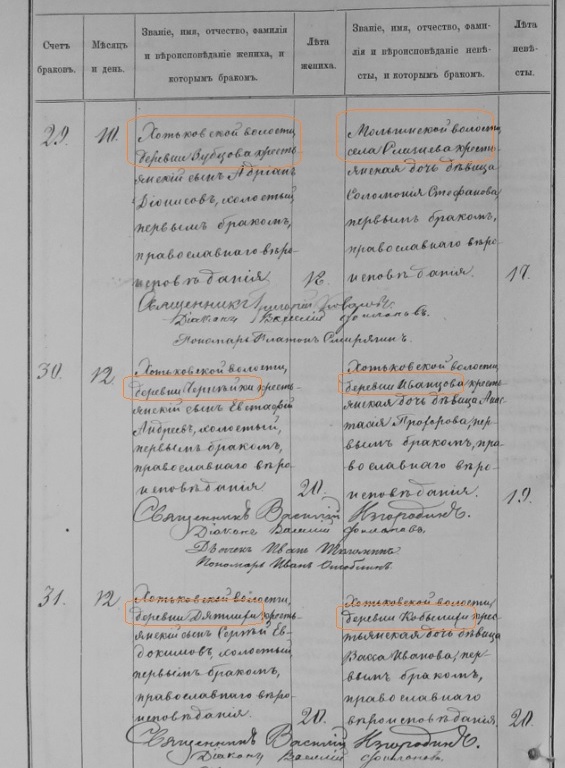 Счетъ
браковъ.
Мѣсяцъ
и день.
Званіе, имя, отчество, фамилія
и вѣроисповѣданіе жениха, и
которымъ бракомъ.
Лѣта
жениха.
Званіе, имя, отчество, фами-
лія и вѣроисповѣданіе невѣ-
сты, и которымъ бракомъ.
Лѣта
невѣ-
сты.
29.
10.
Хотьковской волости,
деревни Зубцова кресть-
янскій сынъ Адріанъ
Діонисовъ, холостый,
первымъ бракомъ,
православнаго вѣро-
исповѣданія
волости,
села кресть-
янская дочь дѣвица
Соломонія Стефанова,
первымъ бракомъ,
православнаго вѣро-
исповѣданія.
17.
Священникъ
Діаконъ Василій
Пономарь Платонъ
30.
12
Хотьковской волости,
деревни кресть-
янскій сынъ Евстафій
Андреевъ, холостый,
первымъ бракомъ,
православнаго вѣро-
исповѣданія
20.
Хотьковской волости,
деревни Иванцова кресть-
янская дочь дѣвица Анас-
тасія Прохорова, пер-
вымъ бракомъ, пра-
вославнаго вѣро-
исповѣданія.
19.
Священникъ Василій
Діаконъ Василій
Дьячекъ Иванъ
Пономарь Иванъ
31.
12
Хотьковской волости,
деревни кресть-
янскій сынъ Сергѣй Ев-
докимовъ, холостый,
первымъ бракомъ,
православнаго вѣро-
исповѣданія.
20.
Хотьковской волости,
деревни крес-
тьянская дочь дѣвица
Васса Иванова, пер-
вымъ бракомъ,
православнаго
вѣроисповѣданія.
20.
Священникъ Василій
Діаконъ Василій